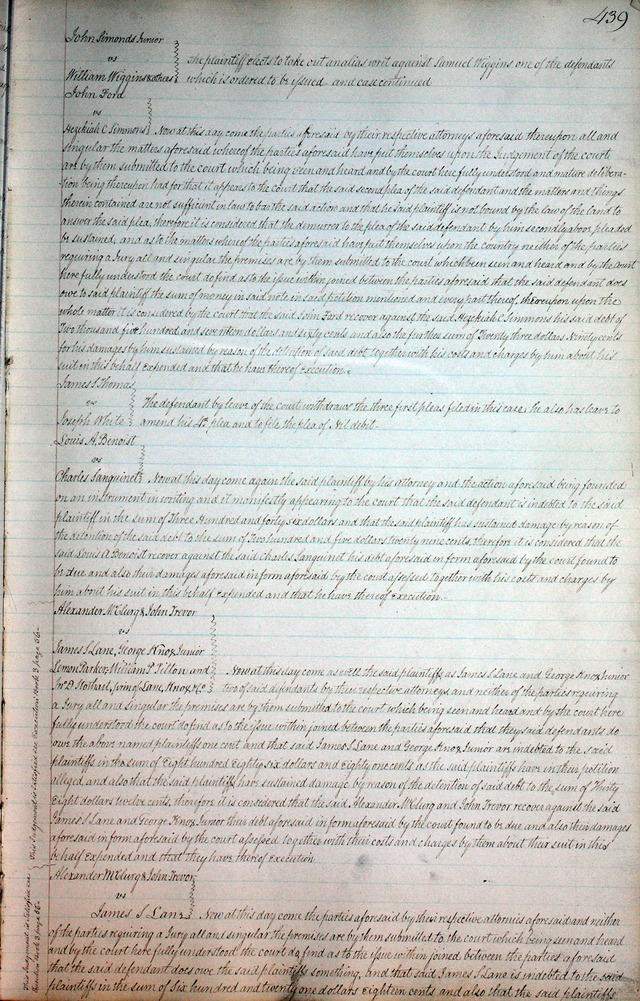 439
John Simonds Junior
vs
William Wiggins & others
The plaintiff elects to take out an alias writ against Samuel Wiggins one of the defendants
which is ordered to be issued and case continued
John Ford
vs
Hezekiah C Simmons Now at this day come the parties aforesaid by their respective attorneys aforesaid thereupon all and
singular the matters aforesaid whereof the parties aforesaid have put themselves upon the Judgement of the court
are by them submitted to the court which being seen and heard and by the court here fully understood and mature delibera-
tion being thereupon had for that it appears to the court that the said second plea of the said defendant and the matters and things
therein contained are not sufficient in law to bar the said action and that he said plaintiff is not bound by the law of the land to
answer the said plea, therefore it is considered that the demurrer to the plea of the said defendant by him secondly above pleaded
be sustained, and as to the matters whereof the parties aforesaid have put themselves upon the country neither of the parties
requiring a Jury all and singular the premises are by them submitted to the court which been seen and heard and by the court
here fully understood the court do find as to the issue within joined between the parties aforesaid that the said defendant does
owe to said plaintiff the sum of money in said note in said petition mentioned and every part thereof, thereupon upon the
whole matter it is considered by the court that the said John Ford recover against the said Hezekiah C Simmons his said debt of
Two thousand five hundred and seventeen dollars and sixty cents and also the further sum of Twenty three dollars Ninety cents
for his damages by him sustained by reason of the detention of said debt together with his costs and charges by him about his
suit on this behalf expended and that he have thereof execution.
James S Thomas
vs
Joseph White
The defendant by leave of the court withdraws the three first pleas filed in this case, he also has leave to
amend his 4th plea and to file the plea of Nil debit
Louis A. Benoist
vs
Charles Sanguinet Now at this day come again the said plaintiff by his attorney and the action aforesaid being founded
on an instrument in writing and it manifestly appearing to the court that the said defendant is indebted to the said
plaintiff in the sum of Three Hundred and forty six dollars and that the said plaintiff has sustained damage by reason of
the detention of the said debt to the sum of Two hundred and five dollars twenty nine cents, therefore it is considered that the
said Louis A Benoist recover against the said Charles Sanguinet his debt aforesaid in form aforesaid by the court found to
be due and also their damages aforesaid in form aforesaid by the court assessed together with his costs and charges by
him about his suit in this behalf expended and that he have thereof execution.
Alexander McClurg & John Trevor
vs
James S Lane, George Knox Junior
Lemon Parker William P Tillon and
Jno. D. Stothail, firm of Lane, Knox & Co.
Now at this day come as well the said plaintiffs as James S Lane and George Knox Junior
two of said defendants by their respective attorneys and neither of the parties requiring
a Jury all and singular the premises are by them submitted to the court which being seen and heard and by the court here
fully understood the court do find as to the issue within joined between the parties aforesaid that they said defendants do
owe the above named plaintiffs one cent and that said James S Lane and George Knox Junior are indebted to the said
plaintiffs in the sum of Eight hundred Eighty six dollars and Eighty one cents as the said plaintiffs have in their petition
alleged and also that the said plaintiffs have sustained damage by reason of the detention of said debt to the sum of Thirty
Eight dollars twelve cents, therefore it is considered that the said Alexander McClurg and John Trevor recover against the said
James S Lane and George Knox Junior their debt aforesaid in form aforesaid by the court found to be due and also their damages
aforesaid in form aforesaid by the court assessed together with their costs and charges by them about their suit in this
behalf expended and that they have thereof execution
This Judgment is satisfied see Execution Book 3 page 56
Alexander McClurg & John Trevor
vs
James S Lane Now at this day come the parties aforesaid by their respective attorneys aforesaid and neither
of the parties requiring a Jury all and singular the premises are by them submitted to the court which being seen and heard
and by the court here fully understood the court do find as to the issue within joined between the parties aforesaid
that the said defendant does owe the said plaintiffs something, and that said James S Lane is indebted to the said
plaintiffs in the sum of Six hundred and twenty one dollars Eighteen cents and also that the said plaintiffs
This Judgment is satisfied see
Execution Book 3 page 56